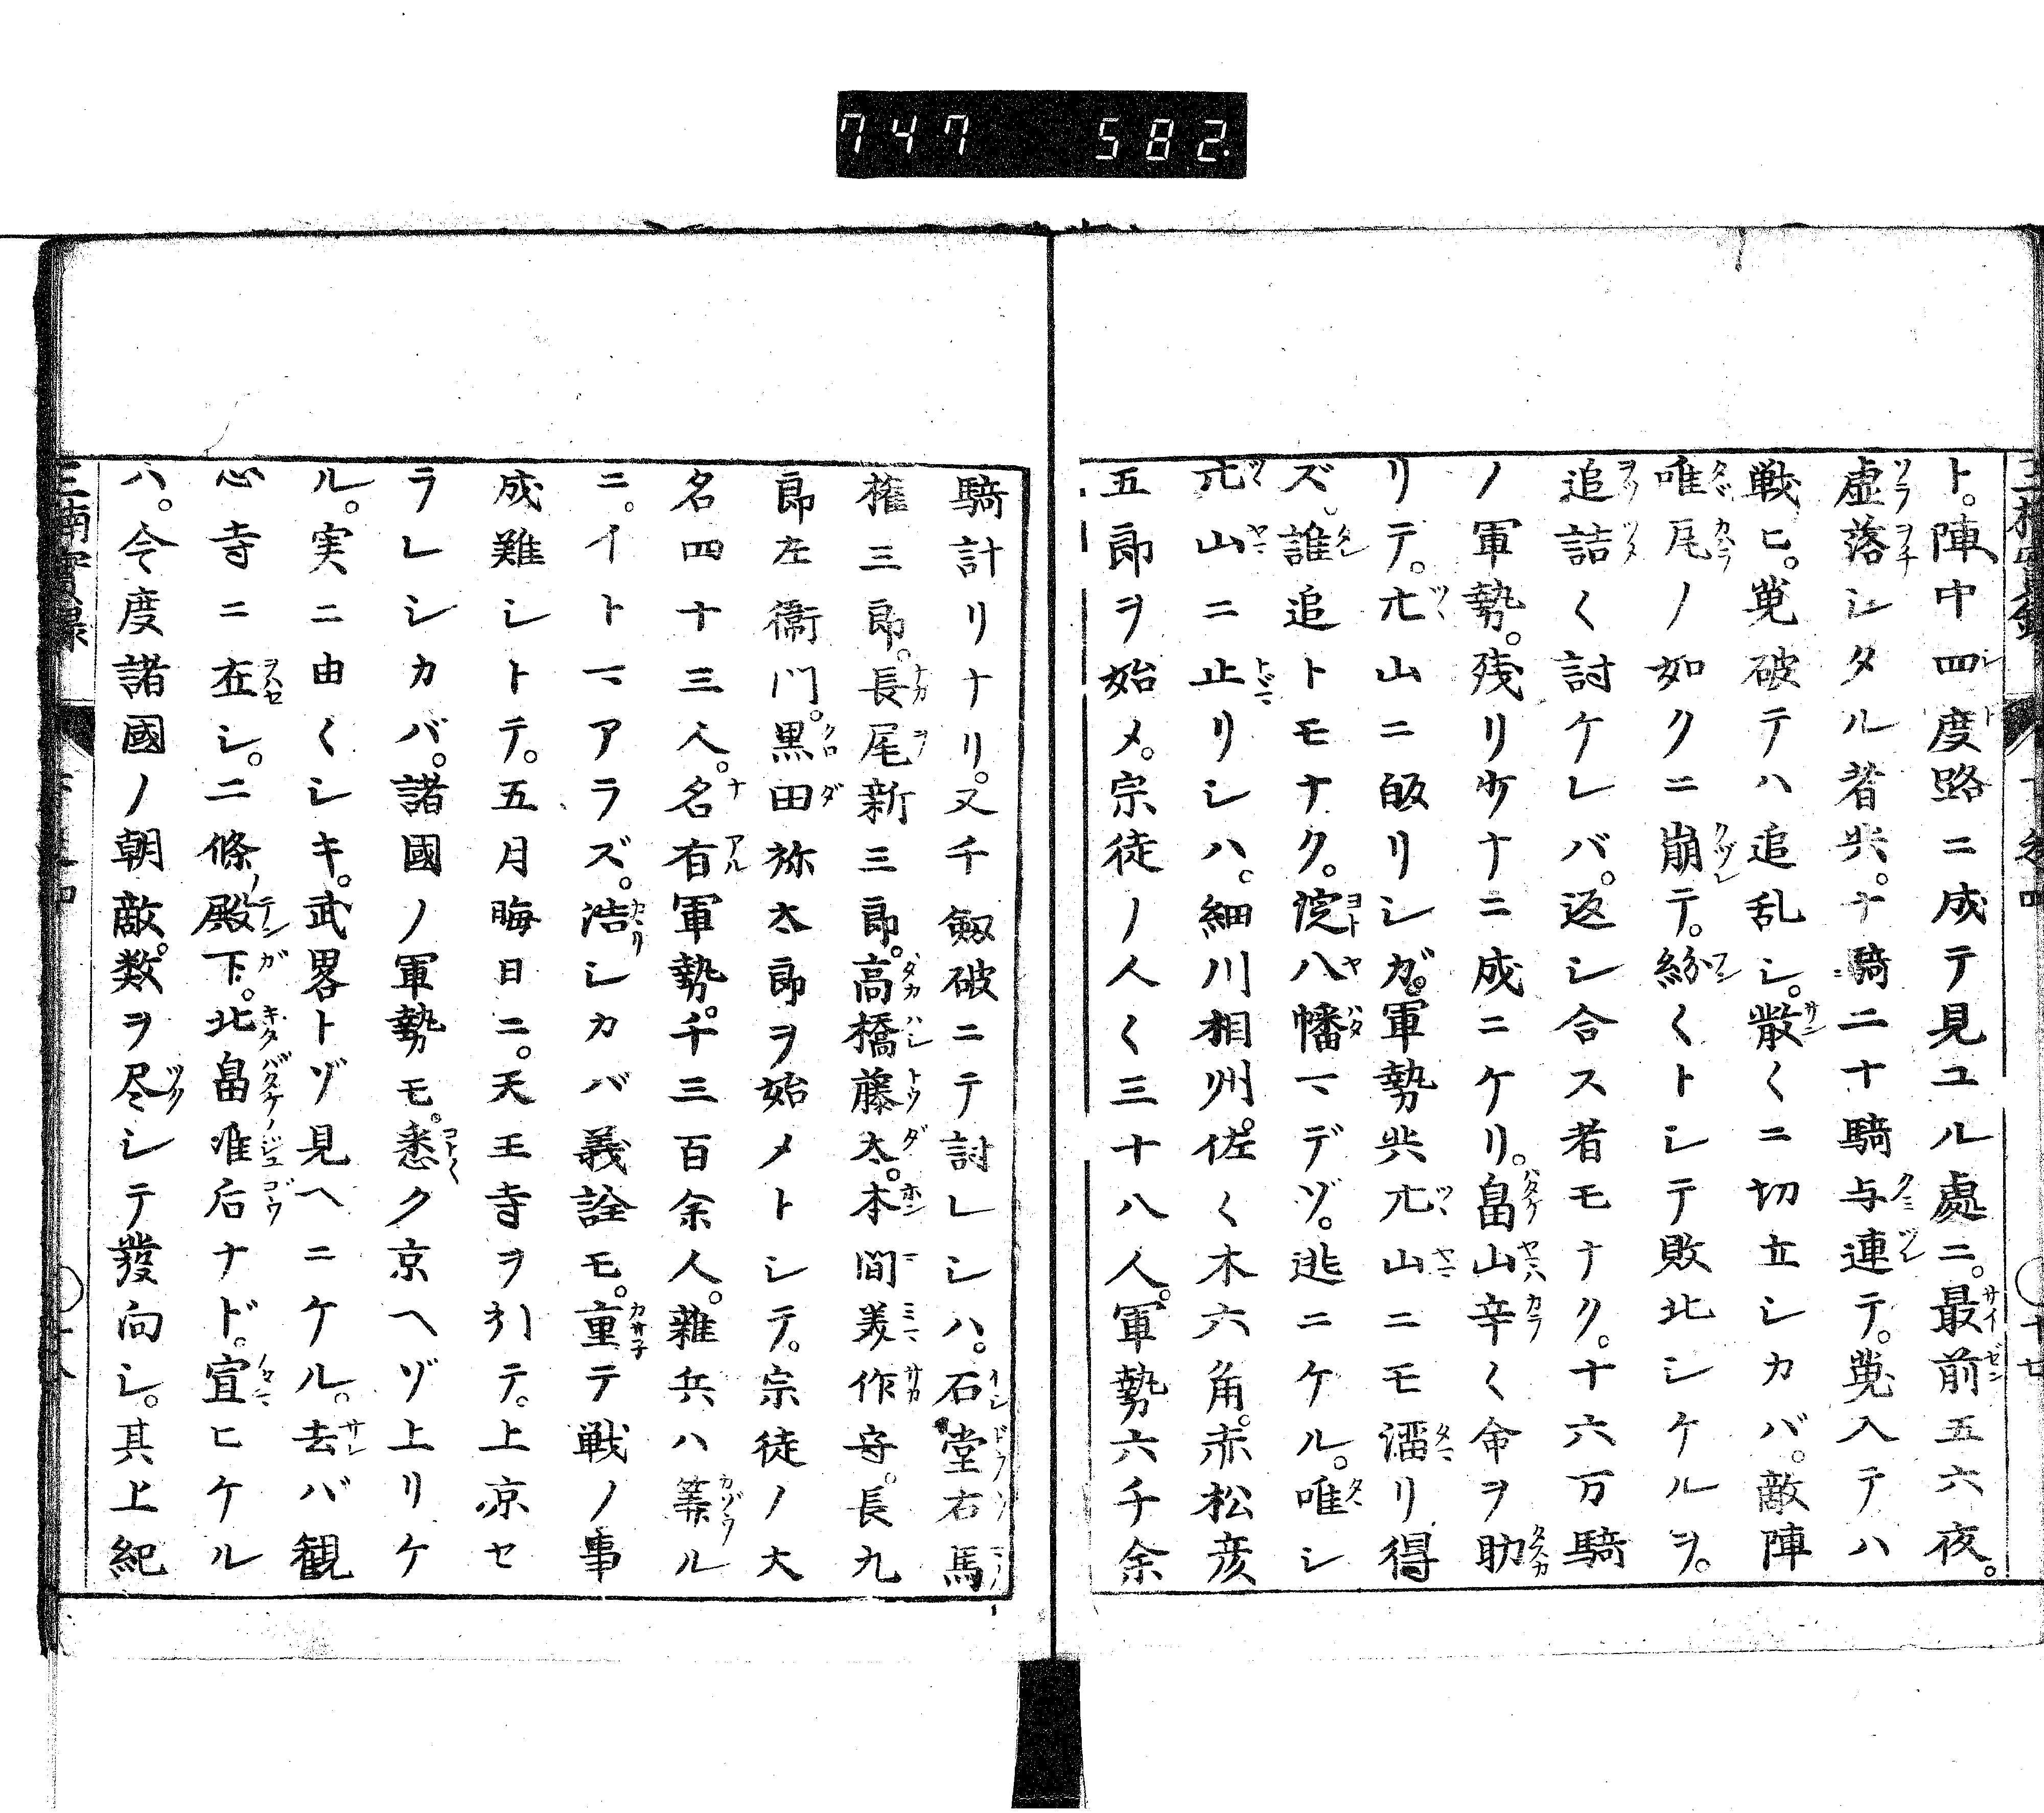 747 582
ト。陣中四度路ニ成テ見ユル處ニ。最前五六夜。
虚落シタル者共。十騎二十騎与連テ。蒐入テハ
戦ヒ。蒐破テハ追乱シ。散〱ニ切立シカバ。敵陣
唯尾ノ如クニ崩テ。紛〱トシテ敗北シケルヲ。
追詰〱討ケレバ。返シ合ス者モナク。十六万騎
ノ軍勢。残リ少ナニ成ニケリ。畠山辛〱命ヲ助
リテ。尢山ニ皈リシガ。軍勢共尢山ニモ溜リ得
ズ。誰追トモナク。淀八幡マデゾ。逃ニケル。唯シ
尢山ニ止リシハ。細川相州。佐〱木六角。赤松彦
五郎ヲ始メ。宗徒ノ人〱三十八人。軍勢六千余
騎計リナリ。又千劔破ニテ討レシハ。石堂右馬
権三郎。長尾新三郎。高橋藤太。本間美作守。長九
郎左衛門。黒田弥太郎ヲ始メトシテ。宗徒ノ大
名四十三人。名有軍勢。千三百余人。雑兵ハ筭ル
ニ。イトマアラズ。浩シカバ義詮モ。重テ戦ノ事
成難シトテ。五月晦日ニ。天王寺ヲ引テ。上京セ
ラレシカバ。諸國ノ軍勢モ。悉ク京ヘゾ上リケ
ル。実ニ由〱シキ。武畧トゾ見ヘニケル。去バ観
心寺ニ在シ。二條ノ殿下。北畠准后ナド。宣ヒケル
ハ。今度諸國ノ朝敵。数ヲ尽シテ發向シ。其上紀